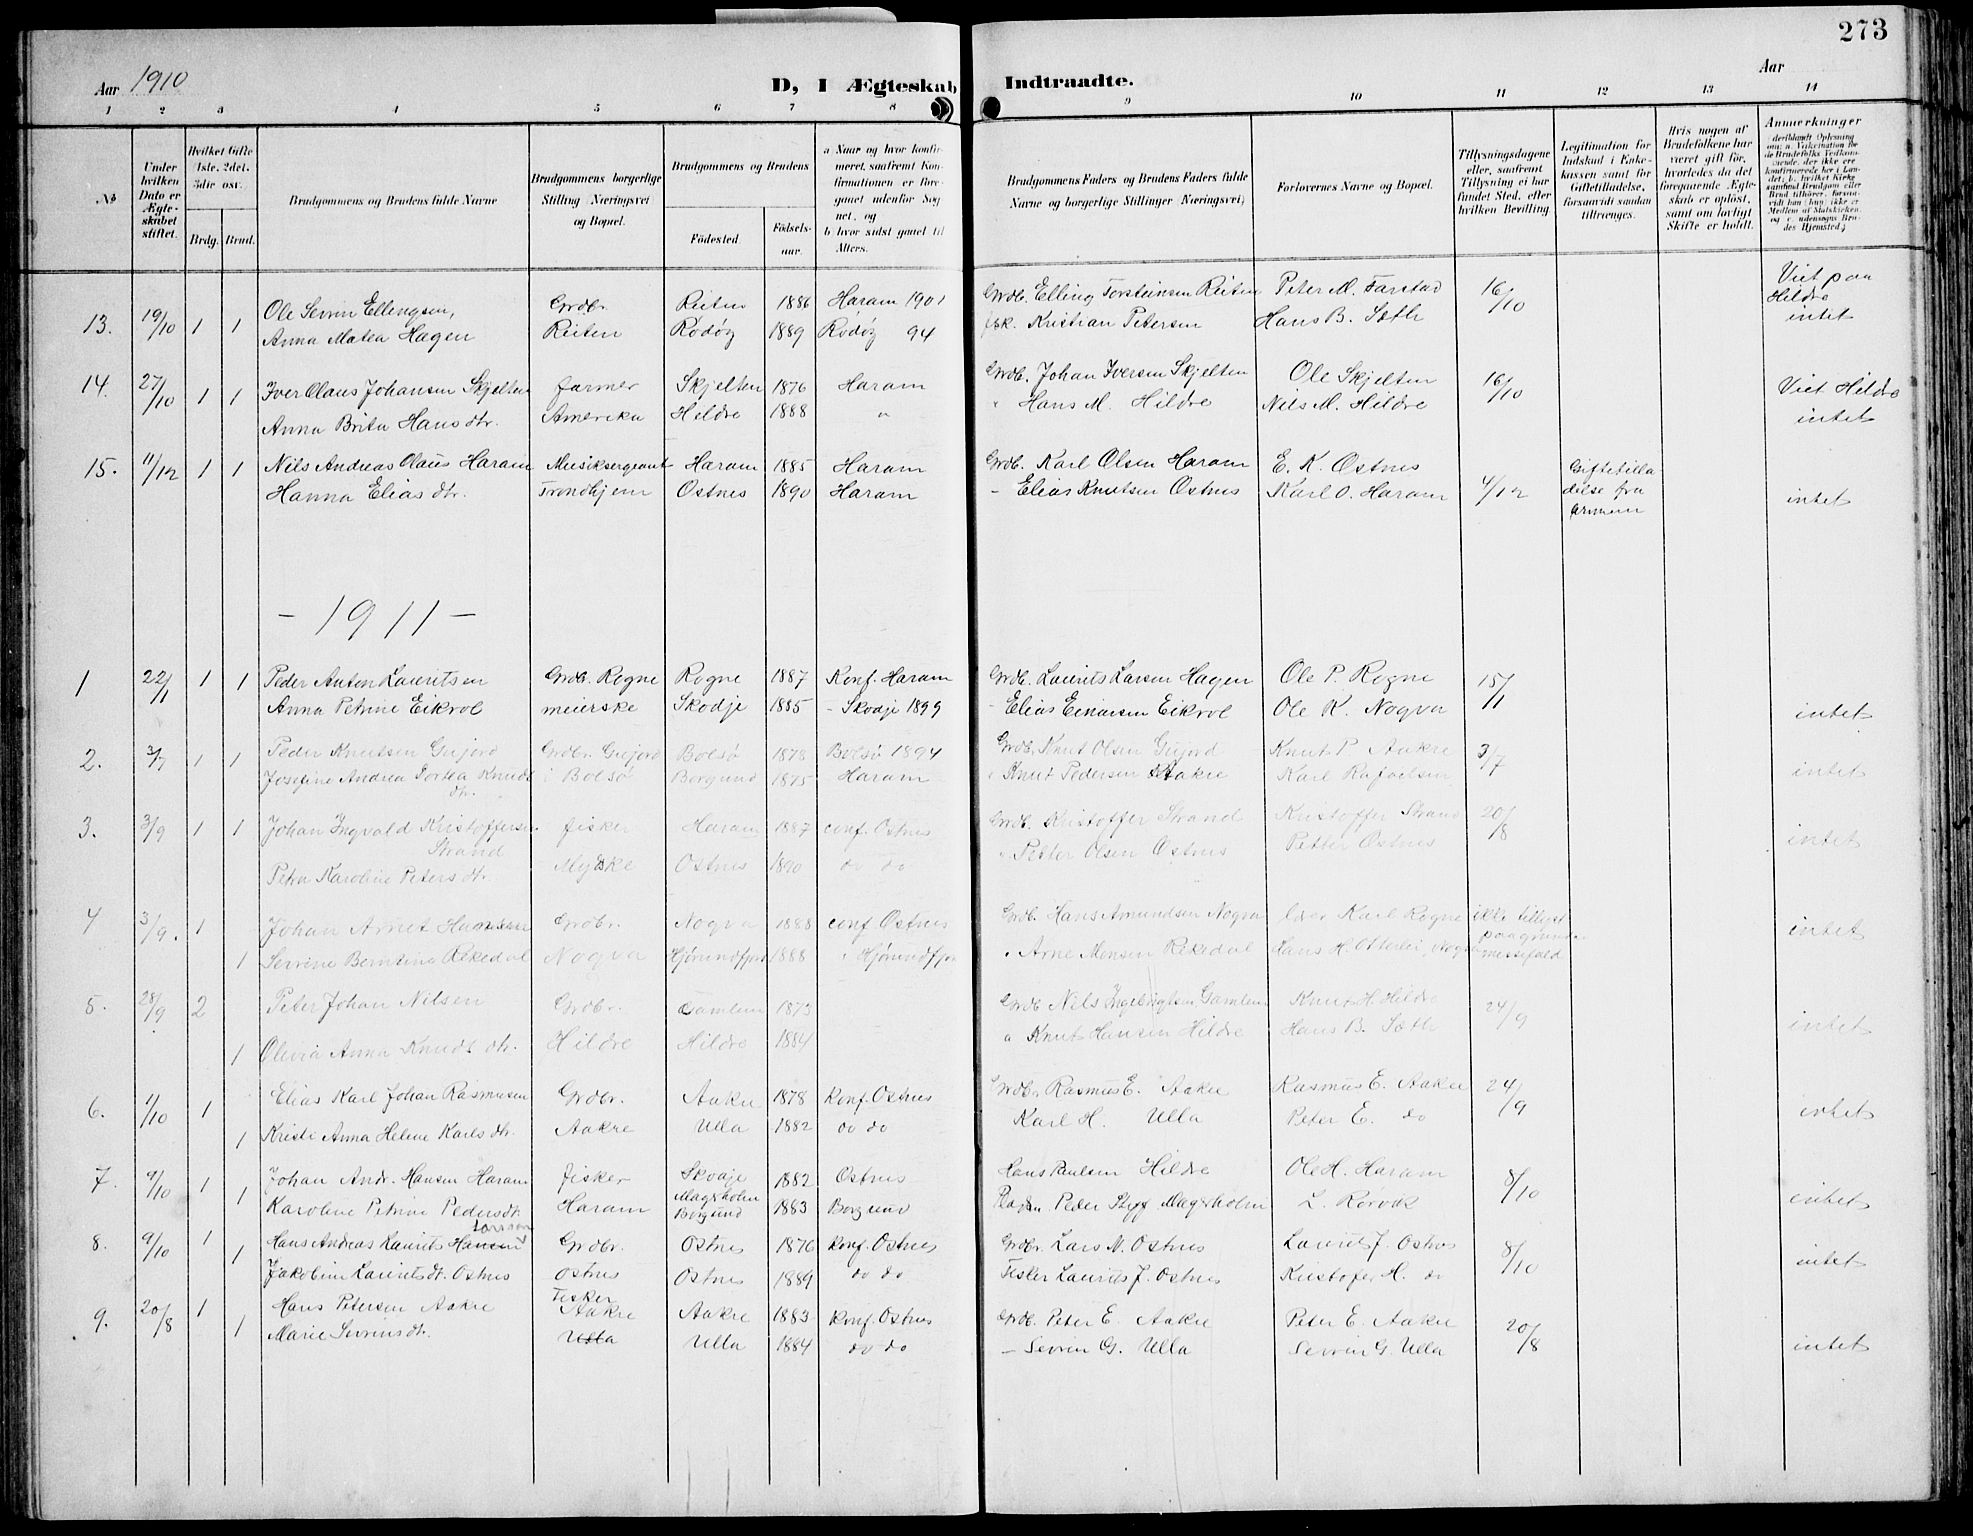 273
Aar 1910
D, I Ægteskab Indtraadte.
Aar
1 2 3 4 5 6 7 8 9 10 11 12 13 14
No
Under hvilken Dato er Ægteskabet stiftet.
Hvilket Gifte 1ste, 2det, 3die osv.
Brdg. Brud.
Brudgommens og Brudens fulde Navne
Brudgommens borgerlige Stilling Næringsvei og Bopæl.
Brudgommens og Brudens
Födested
Födselsaar.
a Naar og hvor konfirmeret, saafremt Konfirmationen er foregaaet udenfor Sognet, og
b hvor sidst gaaet til Alters.
Brudgommens Faders og Brudens Faders fulde Navne og borgerlige Stillinger Næringsvei)
Forlovernes Navne og Bopæl.
Tillysningsdagene eller, saafremt Tillysning ei har fundet Sted, efter hvilken Bevilling.
Legitimation for Indskud i Enkekassen samt for Giftetilladelse, forsaavidt saadan tiltrænges.
Hvis nogen af Brudefolkene har været gift för, hvorledes da det foregaaende Ægteskab er oplöst, samt om lovligt Skifte er holdt.
Anmerkninger
13. 19/10 1 1 Ole Sevrin Ellengsen, Grdbr. Reiten 1886 Haram 1901 Grdb. Elling Torsteinsen Reiten Peter M. Farstad 16/10 Viet paa Hildre
Anna Matea Hagen Reiten Rödöy 1889 Rödöy 94 Kristian Petersen Hans B. Sæth intet
14. 27/10 1 1 Iver Olaus Johansen Skjelten farmer Skjelten 1876 Haram Grdb. Johan Iversen Skjelten Ole Skjelten 16/10 Viet Hildre
Anna Brita Hans dtr. Amerika Hildre 1888 " " Hans M. Hildre Nils M. Hildre intet
15. 11/12 1 1 Nils Andreas Olaus Haram Musiksergeant Haram 1885 Haram Grdb. Karl Olsen Haram E. K. Ostnes 4/12 Giftetilla
Hanna Elias dtr. Trondhjem Ostnes 1890 Haram - Elias Knutsen Ostnes Karl O. Haram delse fra intet
armeen
- 1911 -
1 22/1 1 1 Peder Anton Lauritsen Grdb. Rogne Rogne 1887 Konf. Haram Grdb. Laurits Larsen Hagen Ole P. Rogne 15/1
Anna Petrine Eikrol meierske Skodje 1885 - Skodje 1899 - Elias Einarsen Eikrol Ole K. Nogva intet
2. 3/7 1 1 Peder Knutsen Gujord Grdbr. Gujord Bolsö 1878 Bolsö 1894 Grdb. Knut Olsen Gujord Knut P. Aakre 3/7
Josefine Andrea Dortea Knuds dtr. i Bolsö Borgund 1875 - Haram " Knut Pedersen Aakre Karl Rafaelsen intet
3. 3/9 1 1 Johan Ingvald Kristoffersen Strand fisker Haram 1887 conf. Ostnes Grdb. Kristoffer Strand Kristoffer Strand 20/8
Petra Karoline Peters dtr. Ostnes 1890 do do " Petter Olsen Ostnes Petter Ostnes intet
4 3/9. 1 Johan Arnet Hansen Grdbr. Nogva 1888 conf. Ostnes Grdb. Hans Amundsen Nogva Karl Rogne ikke tillyst
1 Sevrine Berntine Rekedal Nogva Hjørundfjord 1888 " Hjørundfjord " Arne Monsen Rekedal Hans H. Otterlei, Nogva messefald intet
5. 28/9 2 Peter Johan Nilsen Grdbr. Gamlem 1873 Grdb. Nils Ingebrigtsen Gamlem Knut H. Hildre 24/9
1 Olevia Anna Knuds dtr. Hildre Hildre 1884 " Knut Hansen Hildre Hans B. Sæth intet
6. 1/10 1 Elias Karl Johan Rasmusen Grdbr. Aakre 1878 Konf. Ostnes Grdb. Rasmus E. Aakre Rasmus E. Aakre 24/9
1 Kristi Anna Helene Karls dtr. Aakre Ulla 1882 do do Karl H. Ulla Peter E. do intet
7. 9/10 1 Johan Andr. Hansen Haram fisker Skodje 1882 Ostnes Hans Paulsen Hildre Ole H. Haram 8/10
1 Karoline Petrine Pedersdtr. Haram Magerholm Borgund 1883 Borgund Peder Magerholm L. Rörvik intet
8. 9/10 1 Hans Andreas Laurits Hansen Larssen Grdbr. Ostnes 1876 Konf. Ostnes Grdbr. Lars N. Ostnes Laurits J. Ostnes 8/10
1 Jakobine Laurits dt. Ostnes Ostnes Ostnes 1889 do do Fisker Laurits J. Ostnes Kristofer H. do intet
9. 20/8 1 Hans Petersen Aakre Fisker Aakre Aakre 1883 Konf. Ostnes Grdb. Peter E. Aakre Peter E. Aakre 20/8
1 Marie Sevrinsdtr. Ulla Ulla 1884 do do - Sevrin G. Ulla Sevrin G. Ulla intet